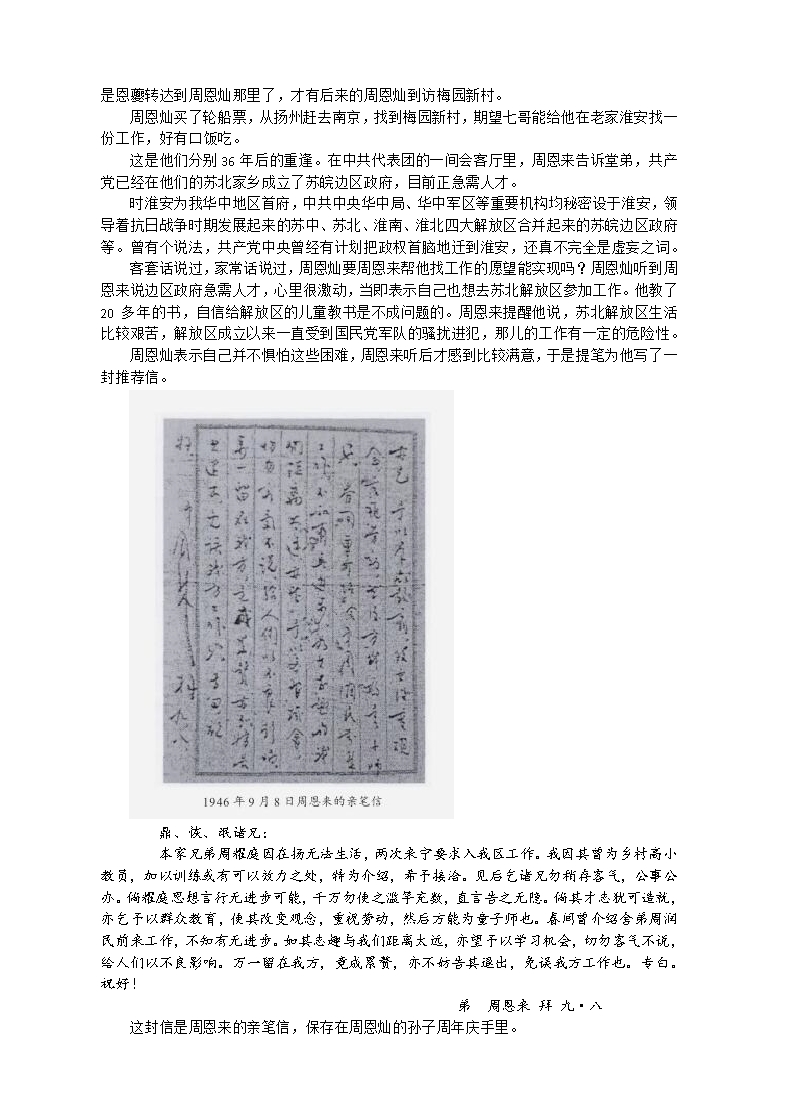 是恩夔转达到周恩灿那里了，才有后来的周恩灿到访梅园新村。
周恩灿买了轮船票，从扬州赶去南京，找到梅园新村，期望七哥能给他在老家淮安找一
份工作，好有口饭吃。
这是他们分别 36 年后的重逢。在中共代表团的一间会客厅里，周恩来告诉堂弟，共产
党已经在他们的苏北家乡成立了苏皖边区政府，目前正急需人才。
时淮安为我华中地区首府，中共中央华中局、华中军区等重要机构均秘密设于淮安，领
导着抗日战争时期发展起来的苏中、苏北、淮南、淮北四大解放区合并起来的苏皖边区政府
等。曾有个说法，共产党中央曾经有计划把政权首脑地迁到淮安，还真不完全是虚妄之词。
客套话说过，家常话说过，周恩灿要周恩来帮他找工作的愿望能实现吗？周恩灿听到周
恩来说边区政府急需人才，心里很激动，当即表示自己也想去苏北解放区参加工作。他教了
20 多年的书，自信给解放区的儿童教书是不成问题的。周恩来提醒他说，苏北解放区生活
比较艰苦，解放区成立以来一直受到国民党军队的骚扰进犯，那儿的工作有一定的危险性。
周恩灿表示自己并不惧怕这些困难，周恩来听后才感到比较满意，于是提笔为他写了一
封推荐信。
亦乞予以群众教育，使其改变观
念，重视劳动，然后方能为童子师
也。春间曾介绍舍弟周润民前来
工作，不知有无进步。如其志趣与我
们距离太远，亦望予以学习机会，
切勿客气不说，给人们以不良影响。
万一留在我方，竟成累赘，亦不妨告
其退出，免误我方工作也。专白。祝
好！
弟周恩来 拜 九·八
1946 年 9 月 8 日周恩来的亲笔信
鼎、恢、泯诸兄：
本家兄弟周耀庭因在扬无法生活，两次来宁要求入我区工作。我因其曾为乡村高小
教员，加以训练或有可以效力之处，特为介绍，希予接洽。见后乞诸兄勿稍存客气，公事公
办。倘耀庭思想言行无进步可能，千万勿使之滥竽充数，直言告之无隐。倘其才志犹可造就，
亦乞予以群众教育，使其改变观念，重视劳动，然后方能为童子师也。春间曾介绍舍弟周润
民前来工作，不知有无进步。如其志趣与我们距离太远，亦望予以学习机会，切勿客气不说，
给人们以不良影响。万一留在我方，竟成累赘，亦不妨告其退出，免误我方工作也。专白。
祝好！
弟 周恩来 拜 九·八
这封信是周恩来的亲笔信，保存在周恩灿的孙子周年庆手里。